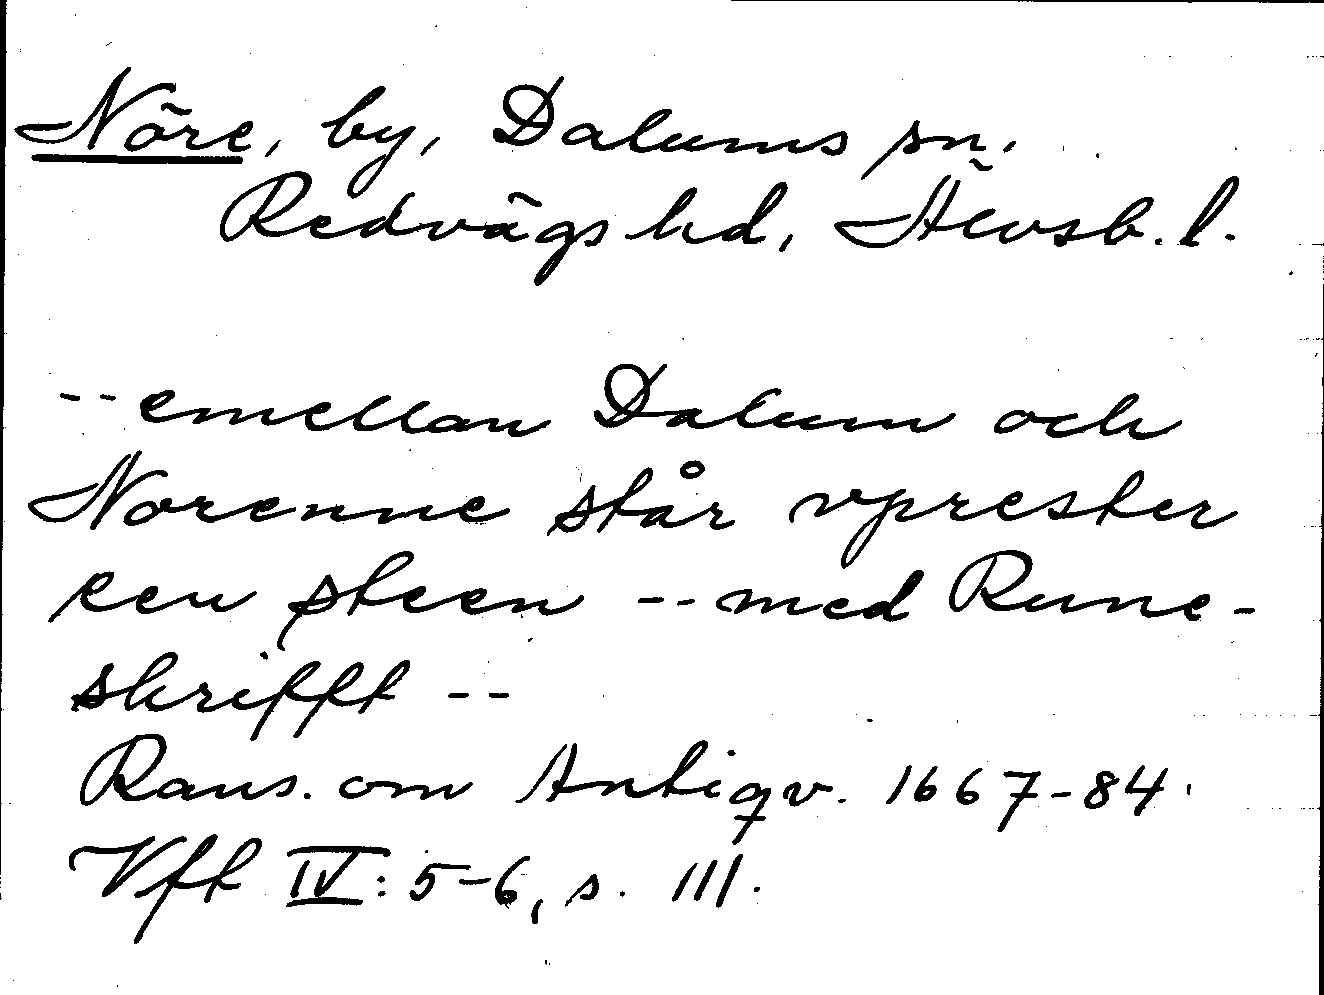 Nöre, by, Dalums sn.
Redvägs hd, Älvsb. l.
-- emellan Dalum och
Norenne står vprester
een steen -- med Rune-
skrifft --
Rans. om Antiqv. 1667-84.
Vft IV: 5-6, s. 111.